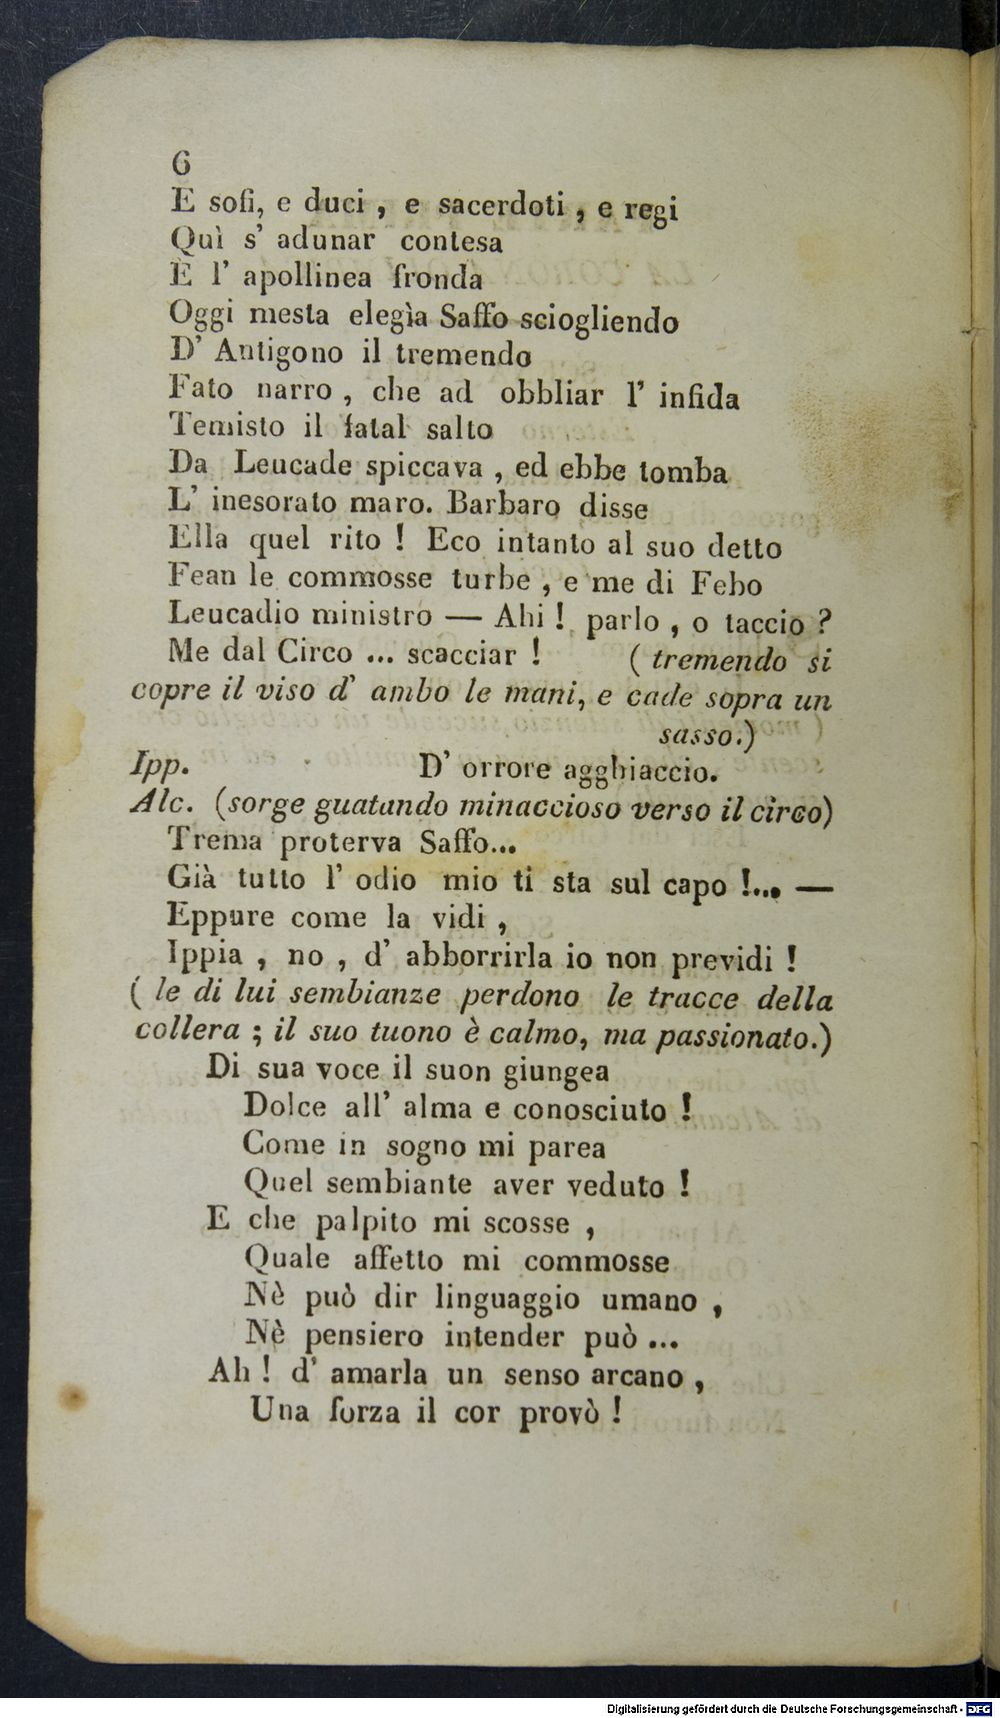 6
E sofi, e duci , e sacerdoti , e regi
Quì s' adunar contesa
È l' apollinea fronda
Oggi mesta elegìa Saffo sciogliendo
D' Antigono il tremendo
Fato narro , che ad obbliar l' infida
Temisto il fatal salto
Da Leucade spiccava , ed ebbe tomba
L' inesorato maro. Barbaro disse
Ella quel rito ! Eco intanto al suo detto
Fean le commosse turbe , e me di Febo
Leucadio ministro — Ahi ! parlo , o taccio ?
Me dal Circo ... scacciar ! ( tremendo si
copre il viso d' ambo le mani, e cade sopra un
sasso.)
Ipp. D' orrore agghiaccio.
Alc. (sorge guatando minaccioso verso il circo)
Trema proterva Saffo...
Già tutto l' odio mio ti sta sul capo !... —
Eppure come la vidi ,
Ippia , no , d' abborrirla io non previdi !
( le di lui sembianze perdono le tracce della
collera ; il suo tuono è calmo, ma passionato.)
Di sua voce il suon giungea
Dolce all' alma e conosciuto !
Come in sogno mi parea
Quel sembiante aver veduto !
E che palpito mi scosse ,
Quale affetto mi commosse
Nè può dir linguaggio umano ,
Nè pensiero intender può ...
Ah ! d' amarla un senso arcano ,
Una forza il cor provò !
Digitalisierung gefördert durch die Deutsche Forschungsgemeinschaft - DFG